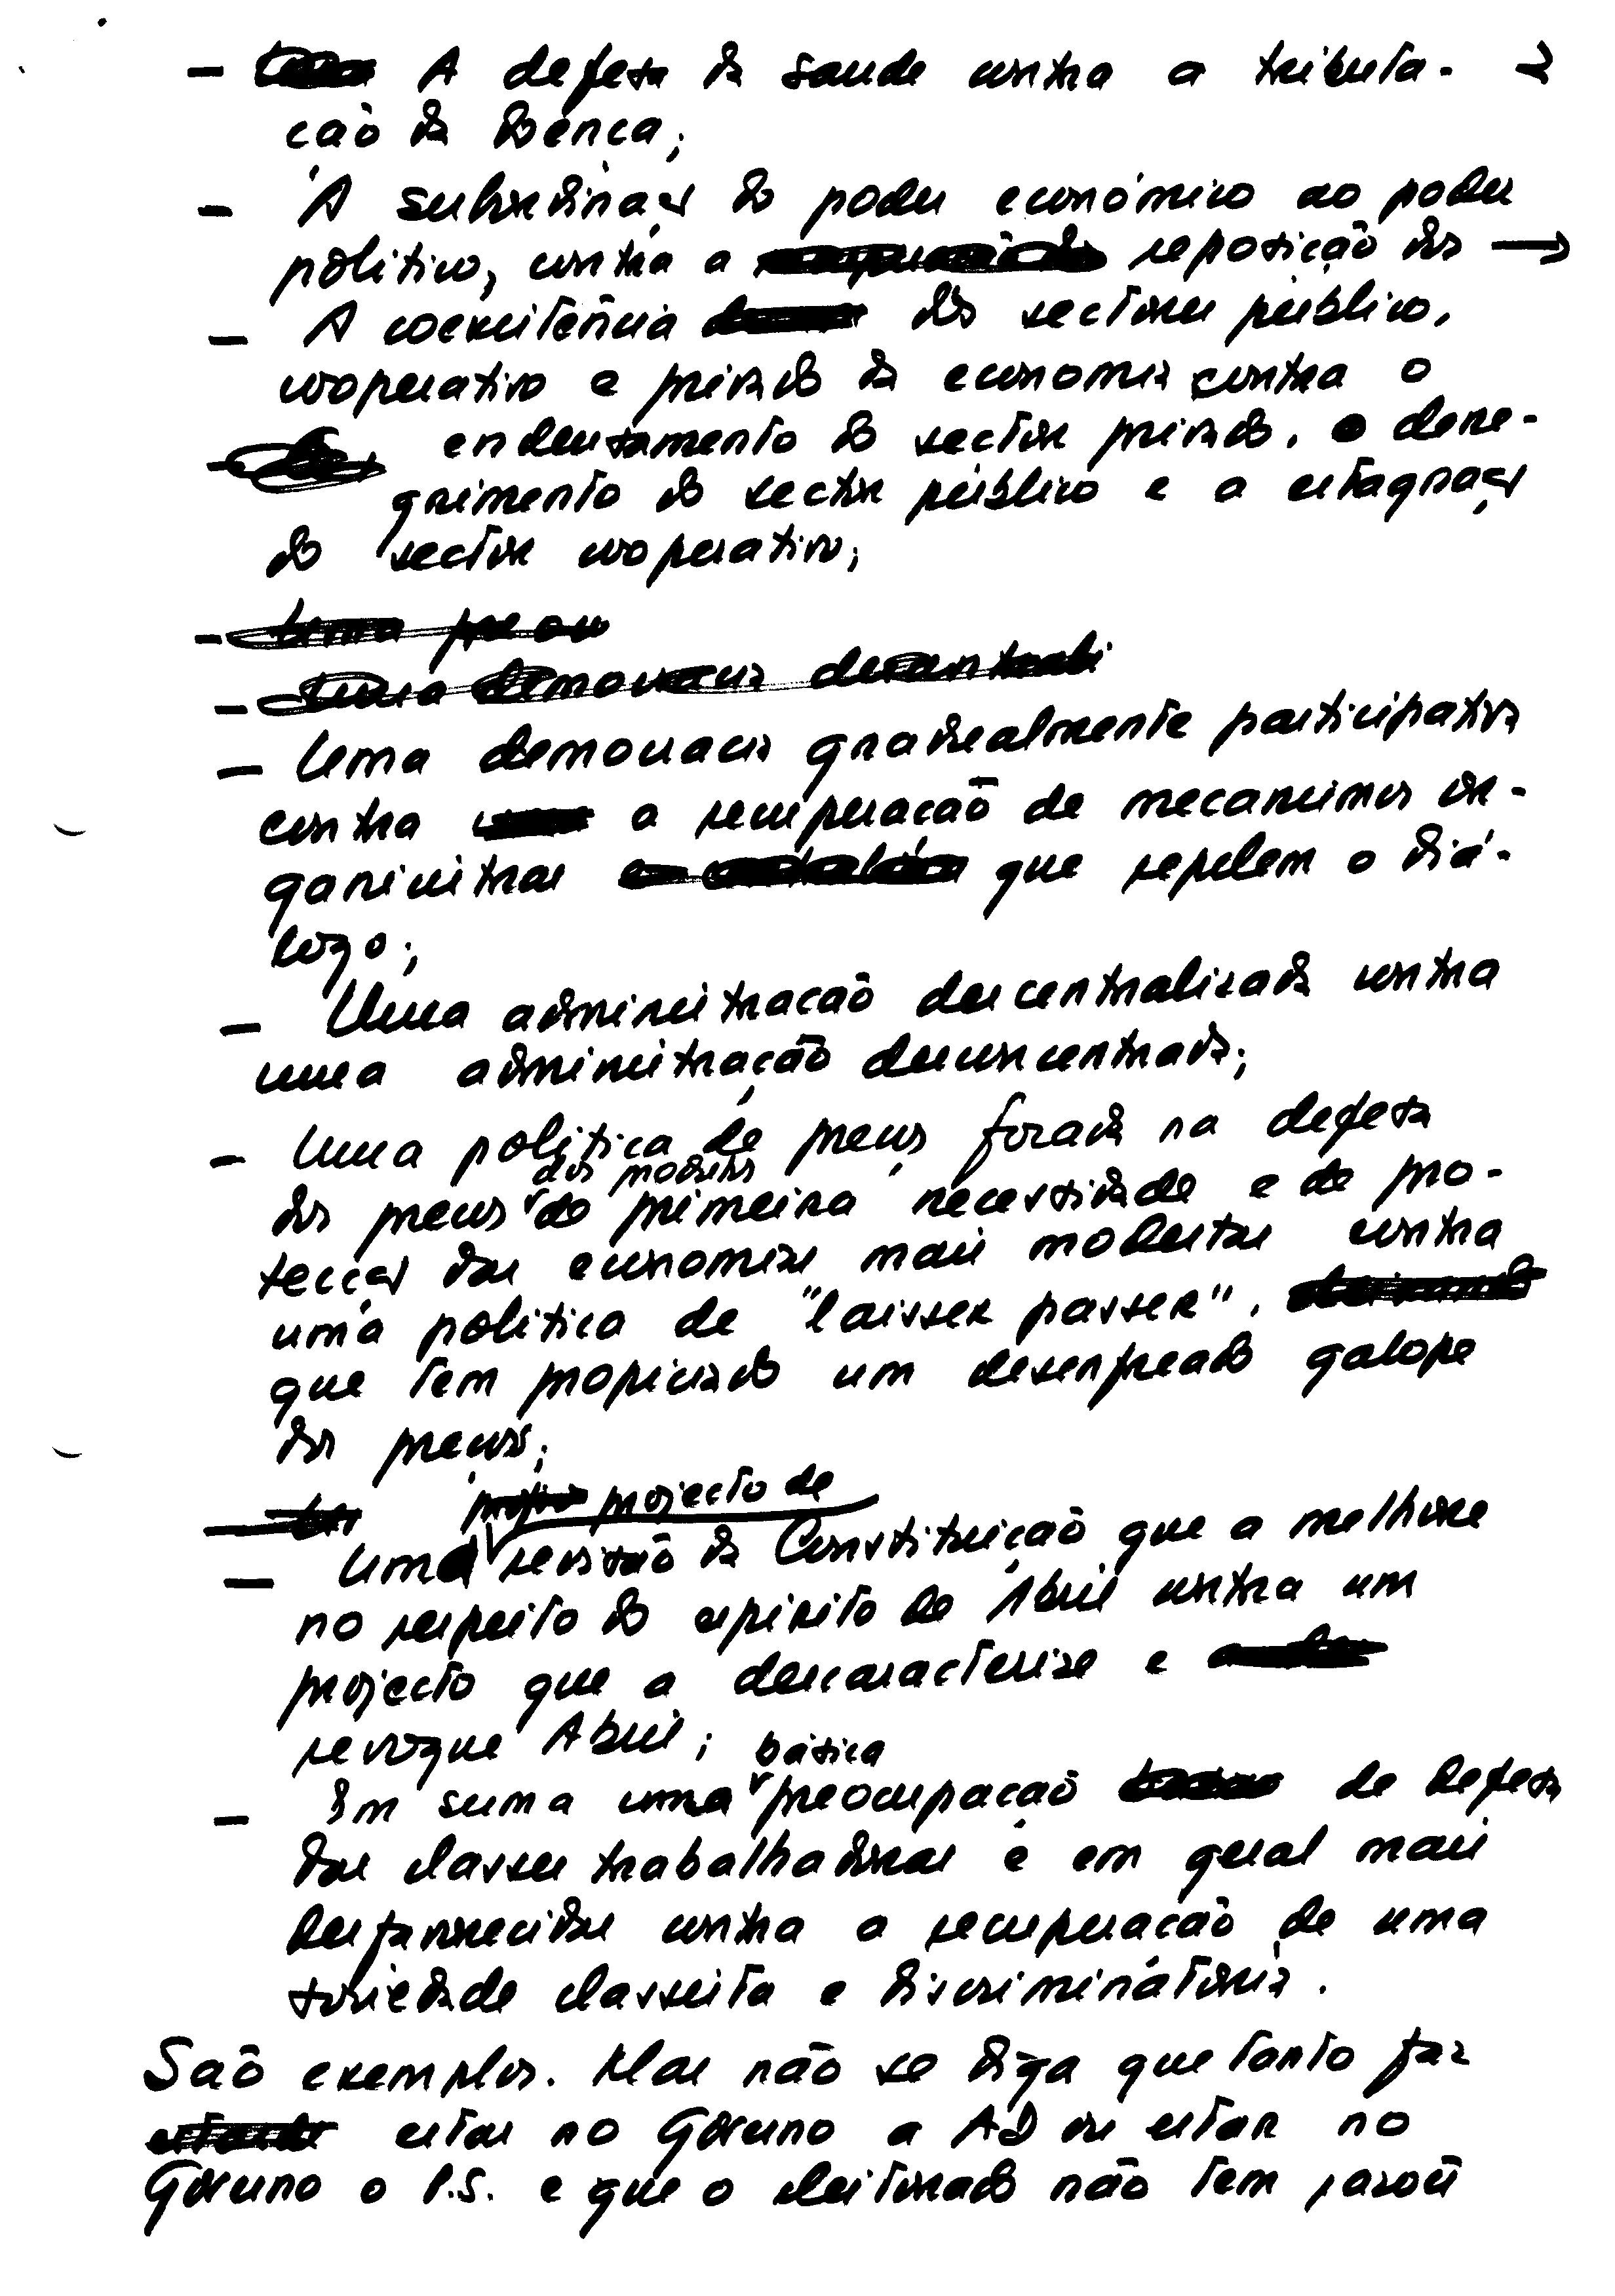 - A defesa da saude contra a tributa- →
ção da doença;
- A subordinação do poder económico ao poder
politico, contra a reposição dos →
- A coexistência dos sectores público,
cooperativo e privado da economia contra o
endeusamento do sector privado, o dene-
grimento do sector público e a estagnação
do sector cooperativo;
- uma democracia descentrali
- Uma democracia gradualmente participativa
contra a recuperação de mecanismos or-
ganicistas que repelem o diá-
logo;
- Uma administração descentralizada contra
uma administração desconcentrada;
- Uma politica de preços forada na defesa
dos produtos
dos preços de primeira necessidade e de pro-
tecção das economias mais modestas contra
uma politica de "laisser passer",
que tem propiciado um desenfreado galope
dos preços;
projecto de
- Uma revisão da Constituição que a melhore
no respeito do espirito de Abril contra um
projecto que a descaracterize e
revogue Abril;
básica
- Em suma uma preocupação de defesa
das classes trabalhadoras e em geral mais
desfavorecidas contra a recuperação de uma
sociedade classista e discriminatória.
São exemplos. Mas não se diga que tanto faz
estar no Governo a AD ou estar no
Governo o P.S. e que o eleitorado não tem razão